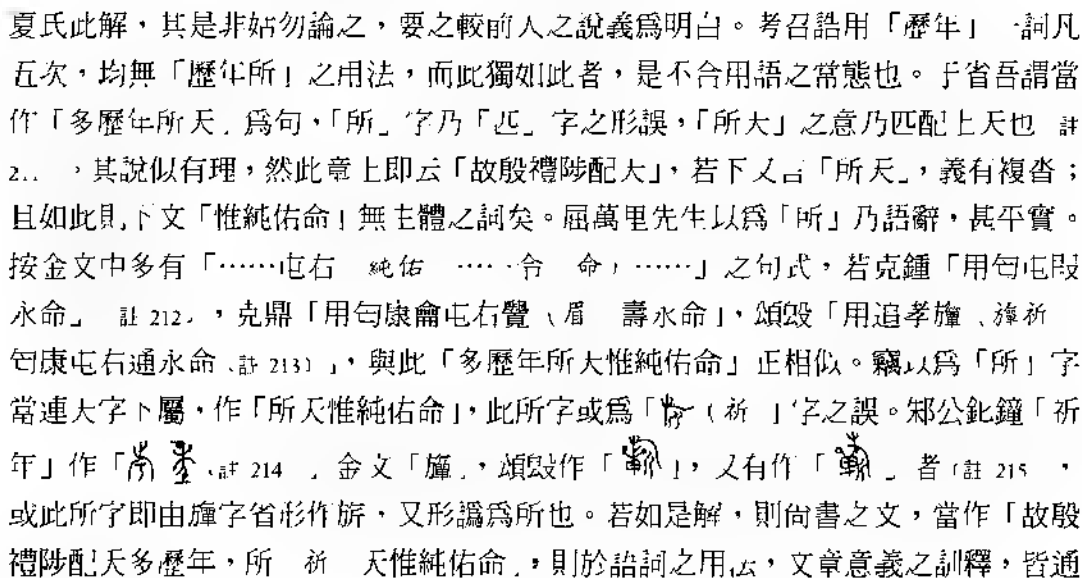 夏氏此解，其是非姑勿論之，要之較前人之說義爲明白。考召誥用「歷年」一詞凡
五次，均無「歷年所」之用法，而此獨如此者，是不合用語之常態也。于省吾謂當
作「多歷年所天」爲句，「所」字乃「匹」字之形誤，「所天」之意乃匹配上天也 註
2 ，其說似有理，然此章上即云「故殷禮陟配天」，若下又言「所天」，義有複沓；
且如此則下文「惟純佑命」無主體之詞矣。屈萬里先生以爲「所」乃語辭，甚平實。
按金文中多有「……屯右 純佑 ……令 命）……」之句式，若克鍾「用匄屯叚
永命」 註 212），克鼎「用匄康龠屯右釁（眉 壽永命」，頌𣪘「用追孝旜（旂祈
匄康屯右通永命（註 213）」，與此「多歷年所天惟純佑命」正相似。竊以爲「所」字
當連天字下屬，作「所天惟純佑命」，此所字或爲「 （祈 」字之誤。邾公釛鐘「祈
年」作「 （註 214 」金文「旜」，頌𣪘作「 」，又有作「 」者（註 215 ，
或此所字即由旜字省形作旂，又形譌爲所也。若如是解，則尚書之文，當作「故殷
禮陟配天多歷年，所 祈 天惟純佑命」，則於語詞之用法，文章意義之訓釋，皆通